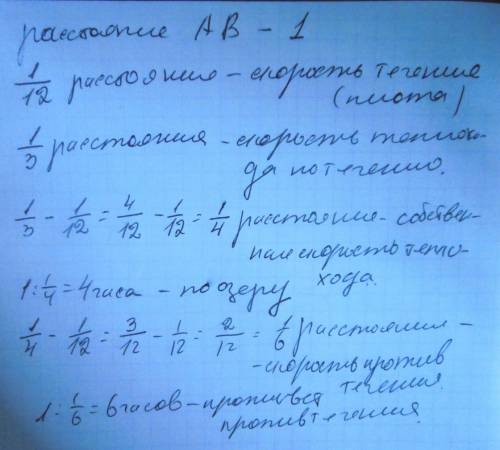 расстояние AB - 1
1/12 расстояния - скорость течения
(плота)
1/3 расстояния - скорость теплохо-
да по течению.
1/3 - 1/12 = 4/12 - 1/12 = 1/4 расстояние - собствен-
ная скорость тепло-
хода.
1 : 1/4 = 4 часа - по озеру
1/4 - 1/12 = 3/12 - 1/12 = 2/12 = 1/6 расстояния -
- скорость против
течения.
1 : 1/6 = 6 часов - проплывёт
против течения.